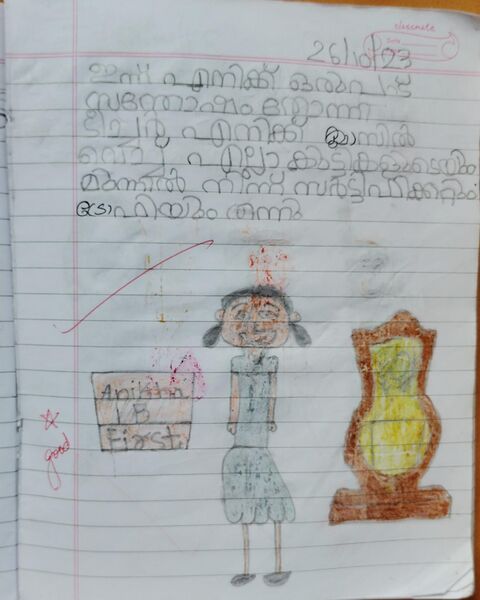 discrete
Date
26/10/23
ഇന്ന് എനിക്ക് ഒരുപാട്
സന്തോഷം തോന്നി
ടീച്ചർ എനിക്ക് ക്ലാസിൽ
വെച്ച് എല്ലാ കുട്ടികളുടെയും
മുന്നിൽ നിന്ന് സർട്ടിഫിക്കറ്റും
ട്രോഫിയും തന്നു
1 B
First
good